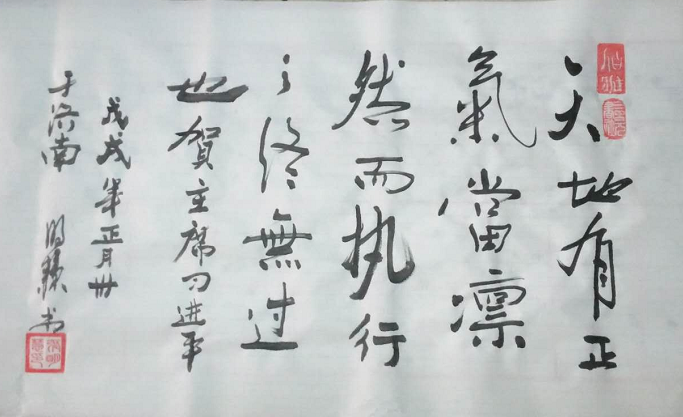 天地有正
氣當凛
然而执行
之终無过
也賀主席习进平
戊戌年正月卅
于济南 明